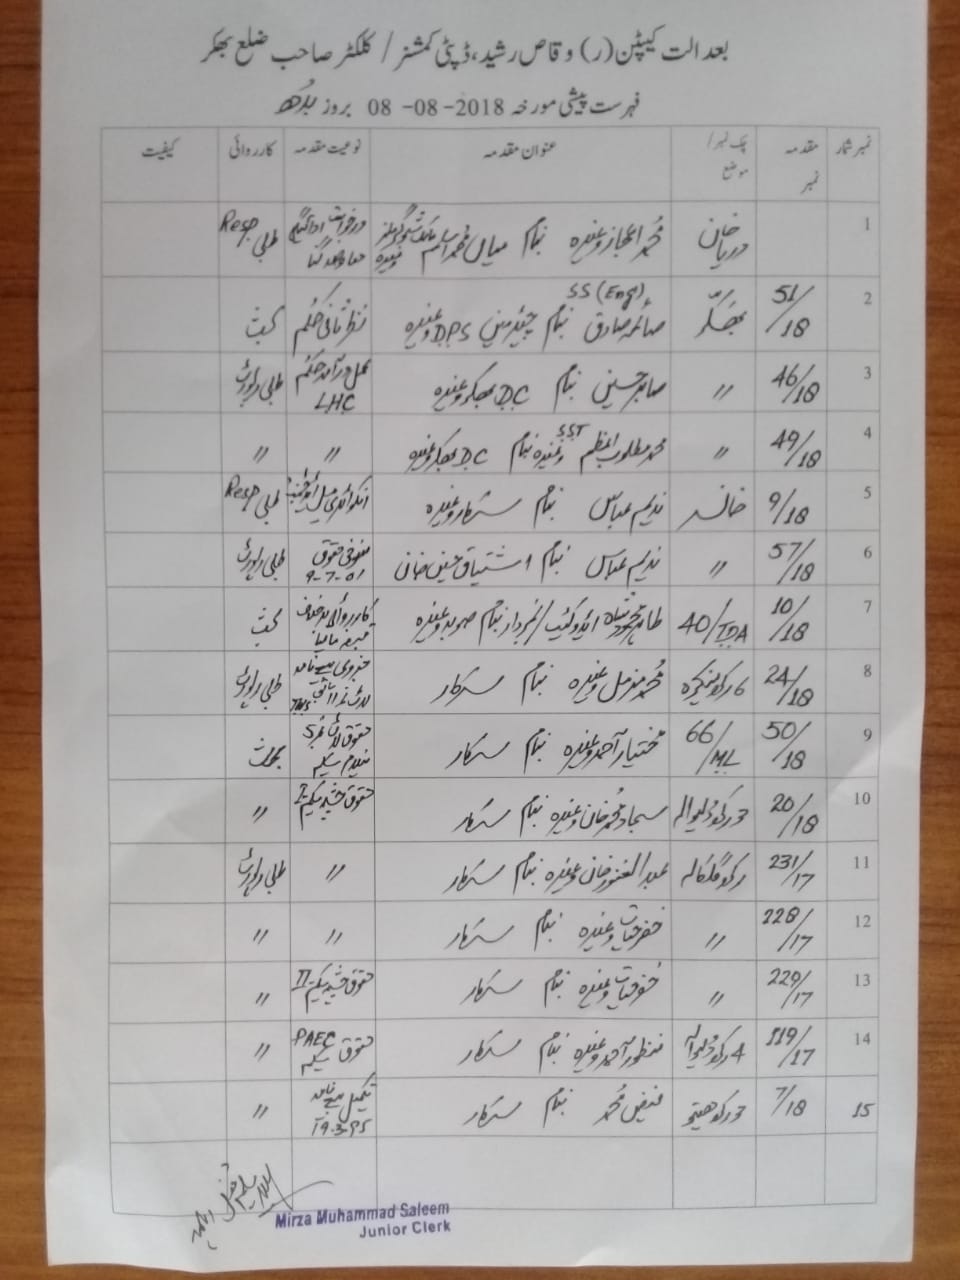 بعدالت کیپٹن (ر) وقاص رشید، ڈپٹی کمشنر / کلکٹر صاحب ضلع بھکر
فہرست پیشی مورخہ 08-08-2018 بروز بدھ
نمبر شمار مقدمہ نمبر چک نمبر / موضع عنوان مقدمہ نوعیت مقدمہ کارروائی کیفیت
1 دریا خان محمد اعجاز وغیرہ بنام میاں محمد اسلم وغیرہ درخواست طلبی Resp
2 51/18 بھکر صائمہ صادق SS (Eng) بنام چیئرمین DPS وغیرہ نظرثانی حکم بحث
3 46/18 〃 صابر حسین بنام DC بھکر وغیرہ عمل درآمد حکم LHC طلبی رپورٹ
4 49/18 〃 محمد مطلوب اعظم SST وغیرہ بنام DC بھکر وغیرہ 〃 〃
5 9/18 خانسر ندیم عباس بنام سرکار وغیرہ طلبی Resp
6 57/18 〃 ندیم عباس بنام اشتیاق حسین خان منسوخی حقوق 9-7-01 طلبی رپورٹ
7 10/18 40/TDA ایڈووکیٹ / نمبردار بنام صوبہ وغیرہ کارروائی برخلاف بحث
8 24/18 محمد مزمل وغیرہ بنام سرکار طلبی رپورٹ
9 50/18 66/ML مختیار احمد وغیرہ بنام سرکار حقوق نیلام سکیم بحث
10 20/18 سجاد محمد خان وغیرہ بنام سرکار 〃
11 231/17 عبدالغفور خان وغیرہ بنام سرکار 〃 طلبی رپورٹ
12 228/17 〃 خضر حیات وغیرہ بنام سرکار 〃 〃
13 229/17 〃 خضر حیات وغیرہ بنام سرکار 〃
14 119/17 منظور احمد وغیرہ بنام سرکار حقوق PAEC سکیم 〃
15 7/18 فیض محمد بنام سرکار تکمیل بیع نامہ 19.3.95 〃
Mirza Muhammad Saleem
Junior Clerk